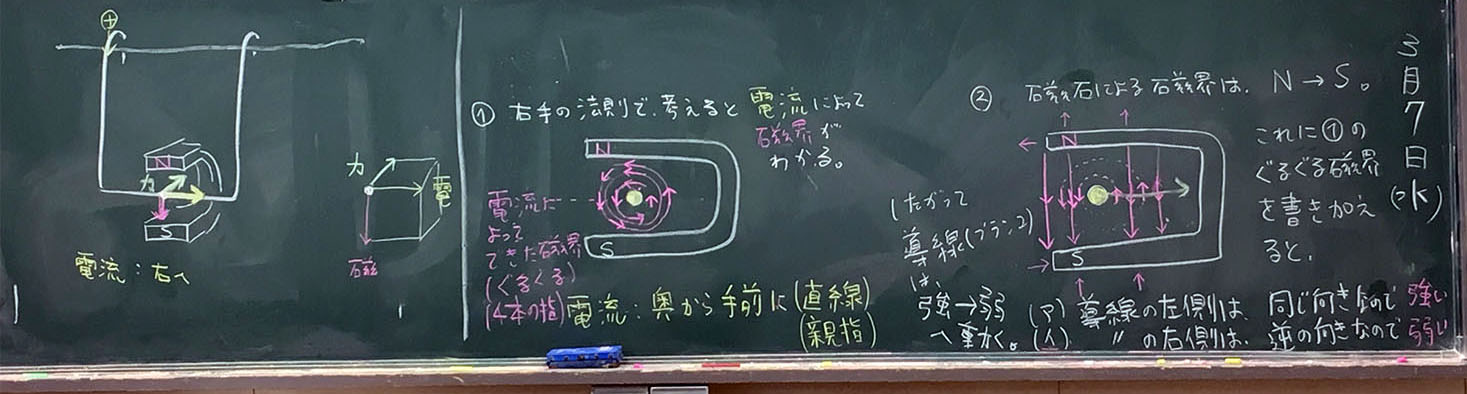 ⊕
N
力
S
電流:右へ
力
電
磁
① 右手の法則で、考えると 電流によって
磁界が
わかる。
N
S
電流に
よって
できた磁界
(ぐるぐる)
(4本の指)
電流:奥から手前に(直線)
(親指)
② 磁石による磁界は、N→S。
これに①の
ぐるぐる磁界
を書き加え
ると、
N
S
したがって
導線(ブランコ)
は、
強→弱
へ動く。
(ア) 導線の左側は、同じ向きなので強い
(イ) 〃の右側は、逆の向きなので弱い
3月7日(水)